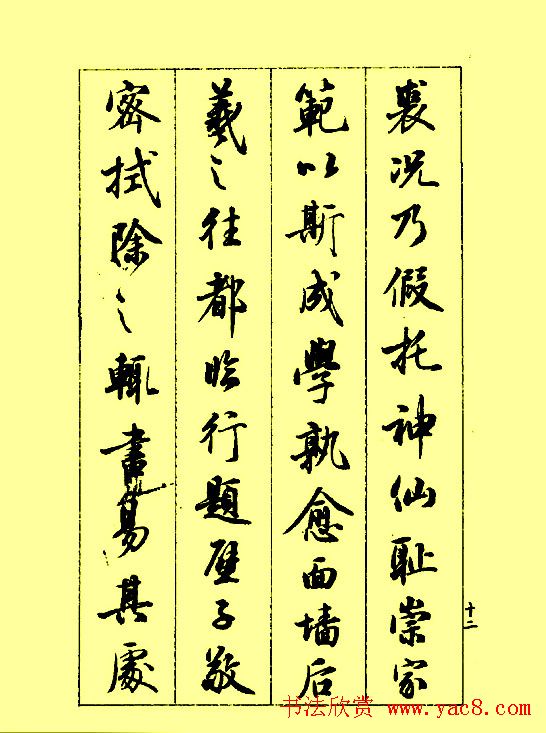 裹况乃假托神仙耻崇家
範以斯成學孰愈面墙后
羲之往都临行题壁子敬
密拭除之輒書易其處
十二
书法欣赏 www.yac8.com